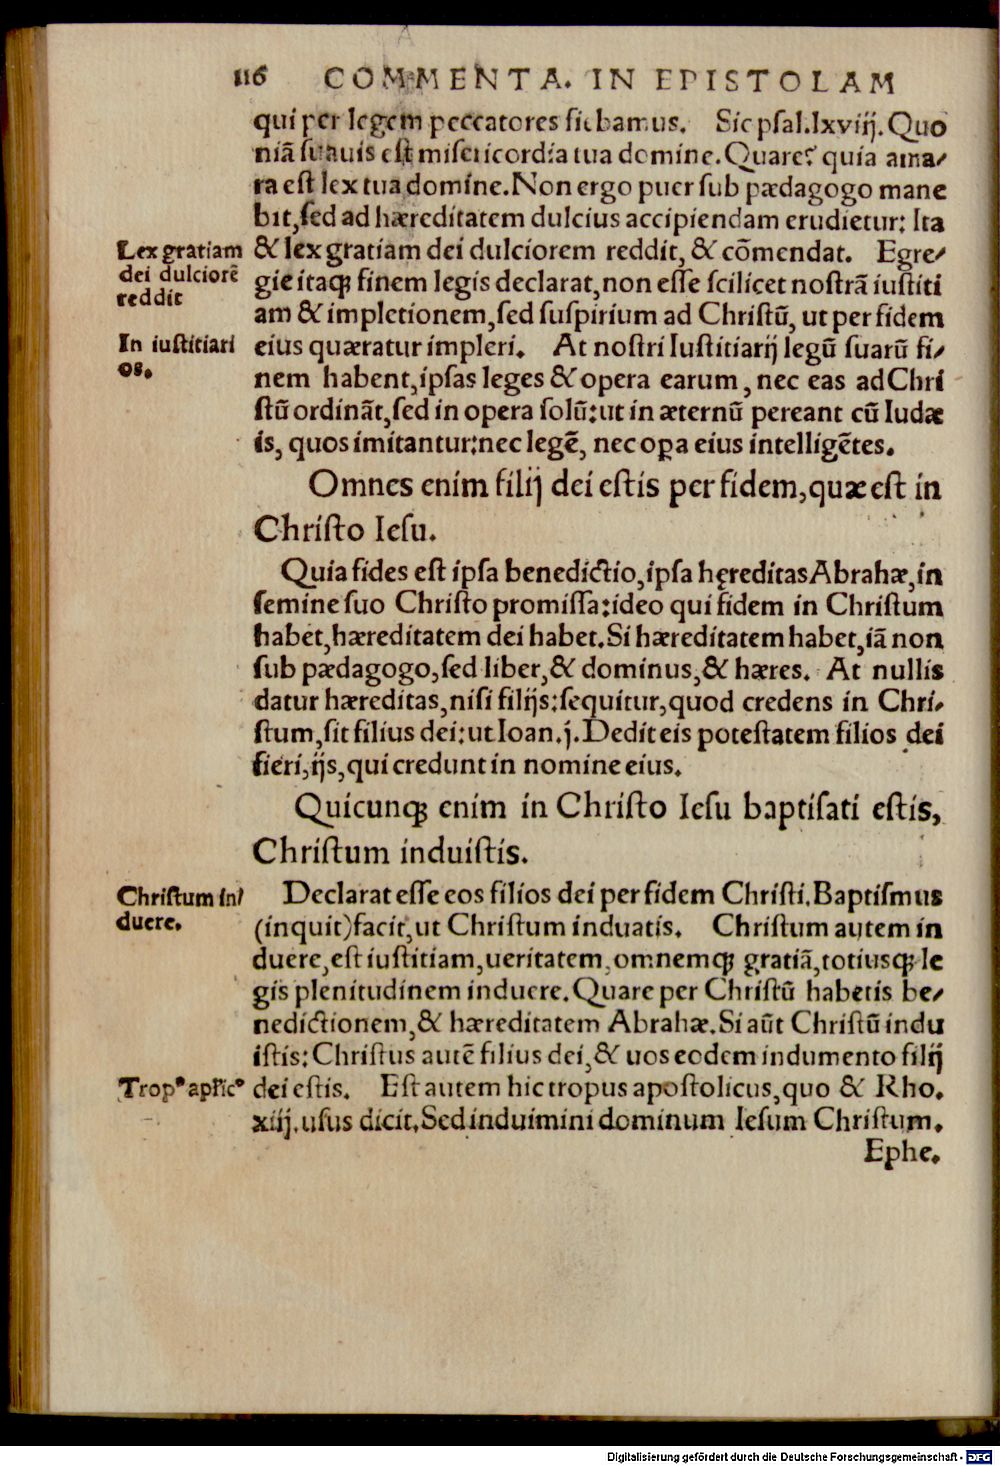 116 COMMENTA. IN EPISTOLAM
qui per legem peccatores fiebamus. Sic psal. lxviij. Quo
niã suauis est misericordia tua domine. Quare? quia ama/
ra est lex tua domine. Non ergo puer sub pædagogo mane
bit, sed ad hæreditatem dulcius accipiendam erudietur: Ita
Lex gratiam
dei dulciorẽ
reddit
& lex gratiam dei dulciorem reddit, & cõmendat. Egre/
gie itaq; finem legis declarat, non esse scilicet nostrã iustiti
am & impletionem, sed suspirium ad Christũ, ut per fidem
In iustitiari
os.
eius quæratur impleri. At nostri Iustitiarij legũ suarũ fi/
nem habent, ipsas leges & opera earum, nec eas ad Chri
stũ ordinãt, sed in opera solũ: ut in æternũ pereant cũ Iudæ
is, quos imitantur: nec legẽ, nec oꝑa eius intelligẽtes.
Omnes enim filij dei estis per fidem, quæ est in
Christo Iesu.
Quia fides est ipsa benedictio, ipsa hęreditas Abrahæ, in
semine suo Christo promissa: ideo qui fidem in Christum
habet, hæreditatem dei habet. Si hæreditatem habet, iã non
sub pædagogo, sed liber, & dominus, & hæres. At nullis
datur hæreditas, nisi filijs: sequitur, quod credens in Chri/
stum, sit filius dei: ut Ioan. j. Dedit eis potestatem filios dei
fieri, ijs, qui credunt in nomine eius.
Quicunq; enim in Christo Iesu baptisati estis,
Christum induistis.
Christum in/
duere.
Declarat esse eos filios dei per fidem Christi. Baptismus
(inquit) facit, ut Christum induatis. Christum autem in
duere, est iustitiam, ueritatem, omnemq; gratiã, totiusq; le
gis plenitudinem induere. Quare per Christũ habetis be/
nedictionem, & hæreditatem Abrahæ. Si aũt Christũ indu
istis: Christus autẽ filius dei, & uos eodem indumento filij
Tropꝰ apłicꝰ
dei estis. Est autem hic tropus apostolicus, quo & Rho.
xiij. usus dicit. Sed induimini dominum Iesum Christum.
Ephe.
Digitalisierung gefördert durch die Deutsche Forschungsgemeinschaft - DFG